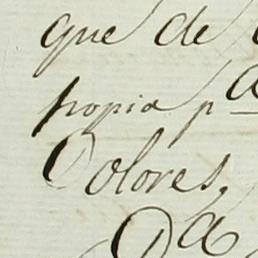 que de
propia pa
Dolores.
Da